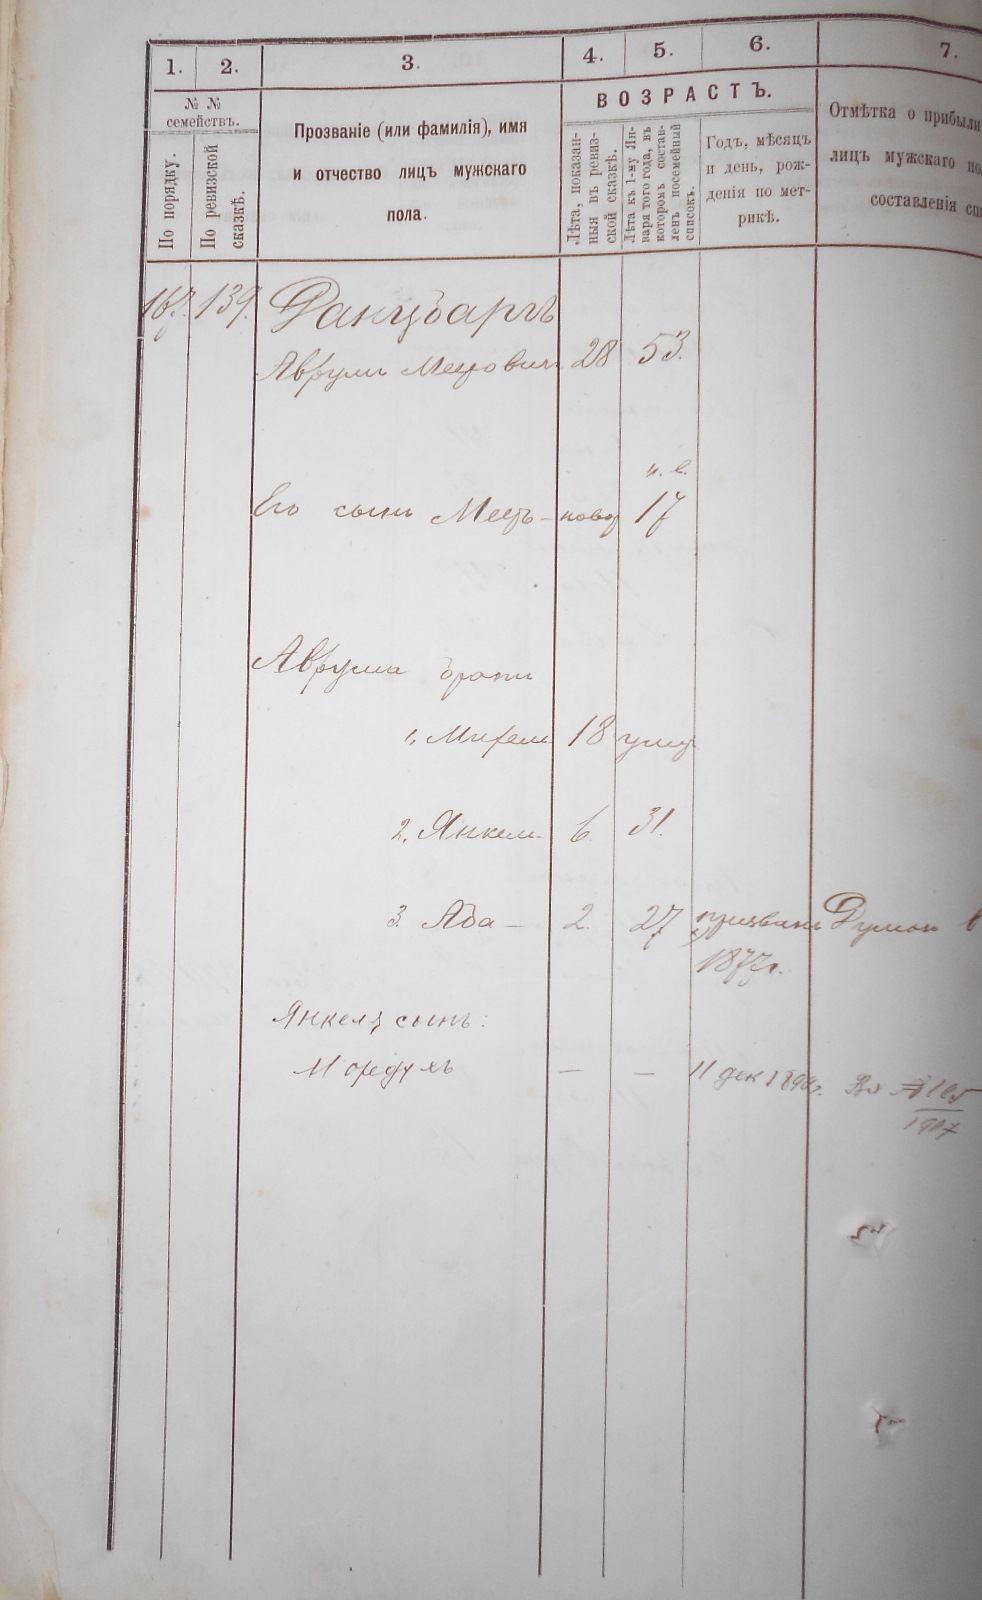 1. 2. 3. 4. 5. 6. 7.
№ № семействъ.
По порядку.
По ревизской сказкѣ.
Прозваніе (или фамилія), имя
и отчество лицъ мужскаго
пола.
ВОЗРАСТЪ.
Лѣта, показан-
ныя въ ревиз-
ской сказкѣ.
Лѣта къ 1-му Ян-
варя того года, въ
которомъ состав-
ленъ посемейный
списокъ.
Годъ, мѣсяцъ
и день, рож-
денія по мет-
рикѣ.
Отмѣтка о прибыли
лицъ мужскаго по
составленія спи
167. 139. Данцбаргъ
Аврумъ Мееровичъ 28 53.
н. в.
Его сынъ Мееръ - новор 17
Аврума братья
1, Михель 18 умер
2, Янкель - 6 31.
3. Аба - 2. 27 призванъ
1877г.
Янкеля сынъ:
Мордухъ - - 11 дек
1907